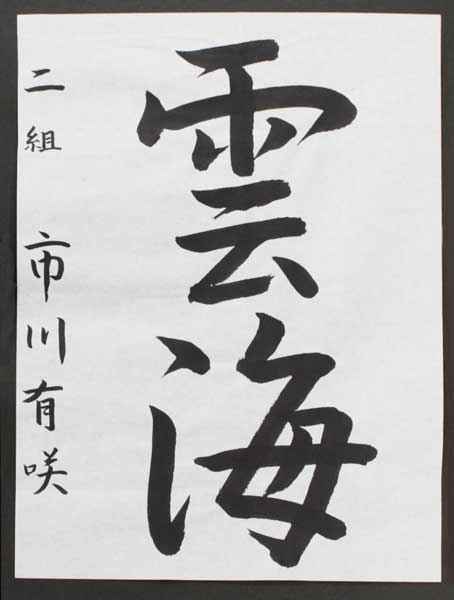 雲海
二組 市川有咲